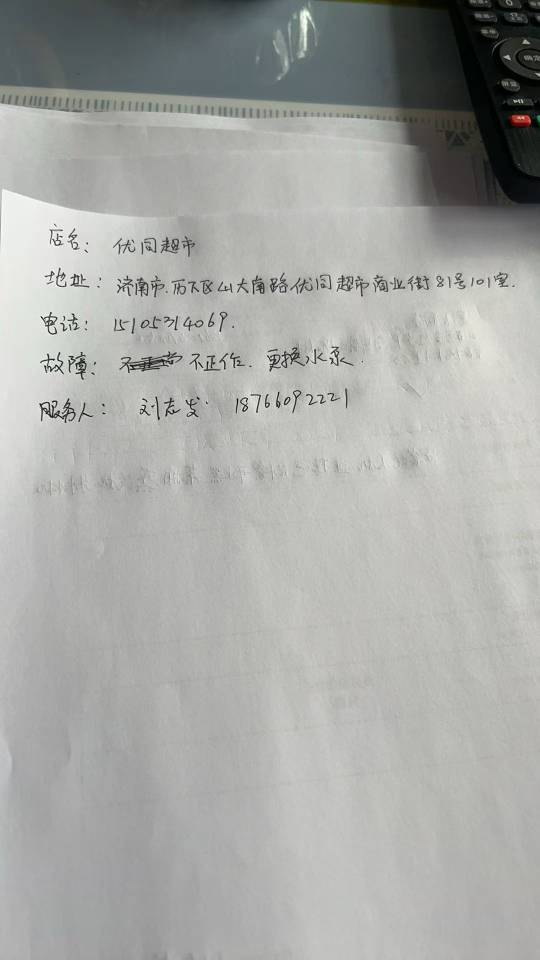 店名: 优同超市
地址: 济南市.历下区山大南路优同超市商业街81号101室.
电话: 15105314069.
故障: 不正作. 更换水泵.
服务人: 刘志发 18766092221